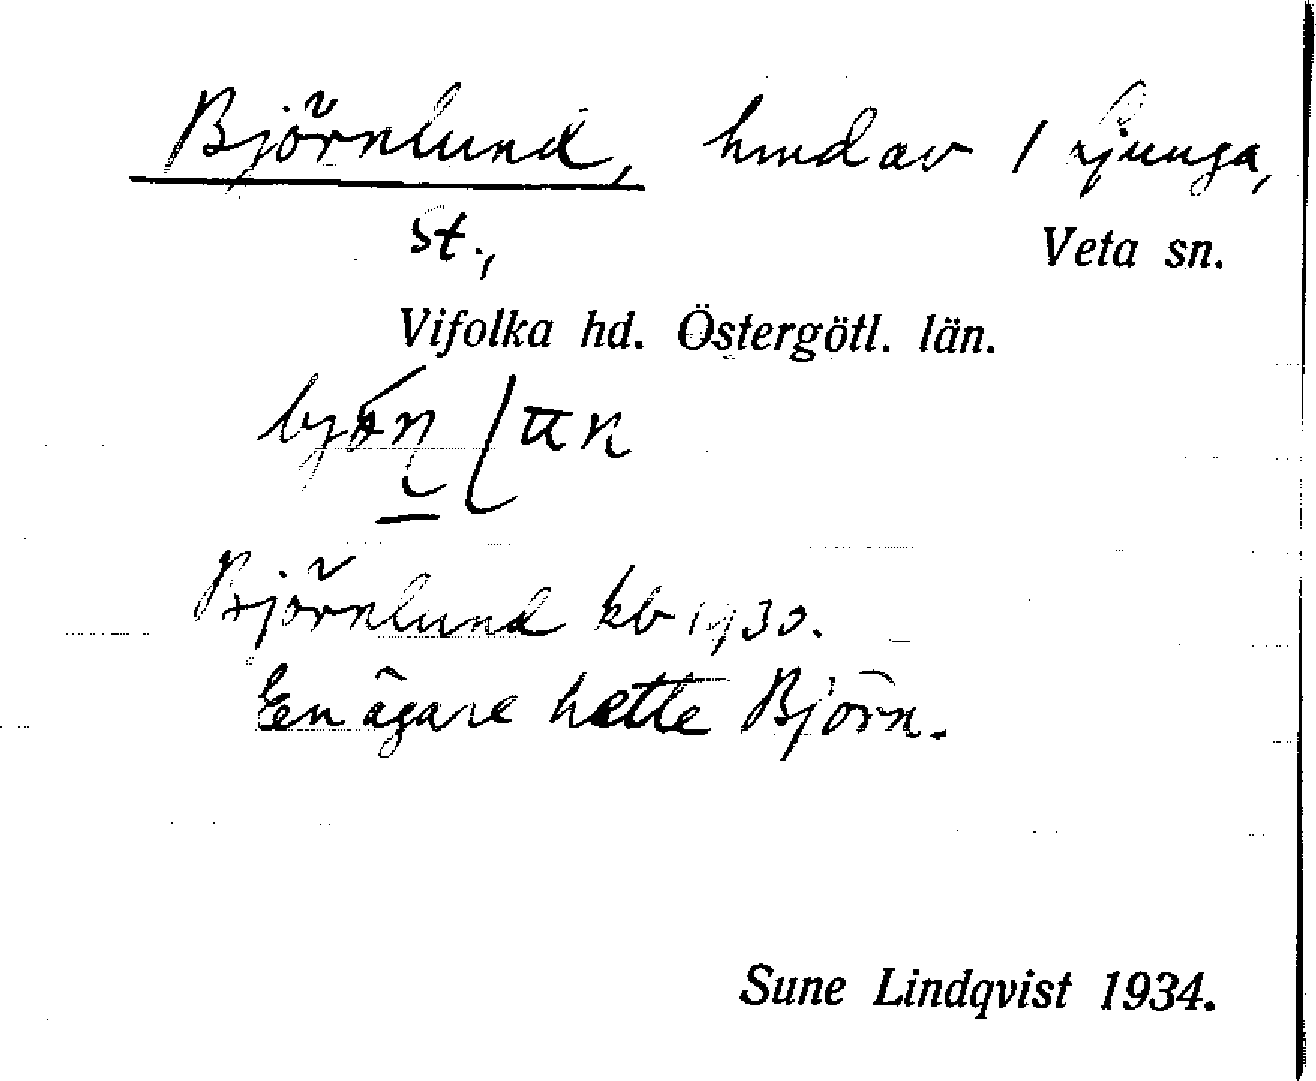 Björnlund, hmd av 1 Ljunga,
st.,
Veta sn.
Vifolka hd. Östergötl. län.
Björnlund kb 1930.
En ägare hette Björn.
Sune Lindqvist 1934.